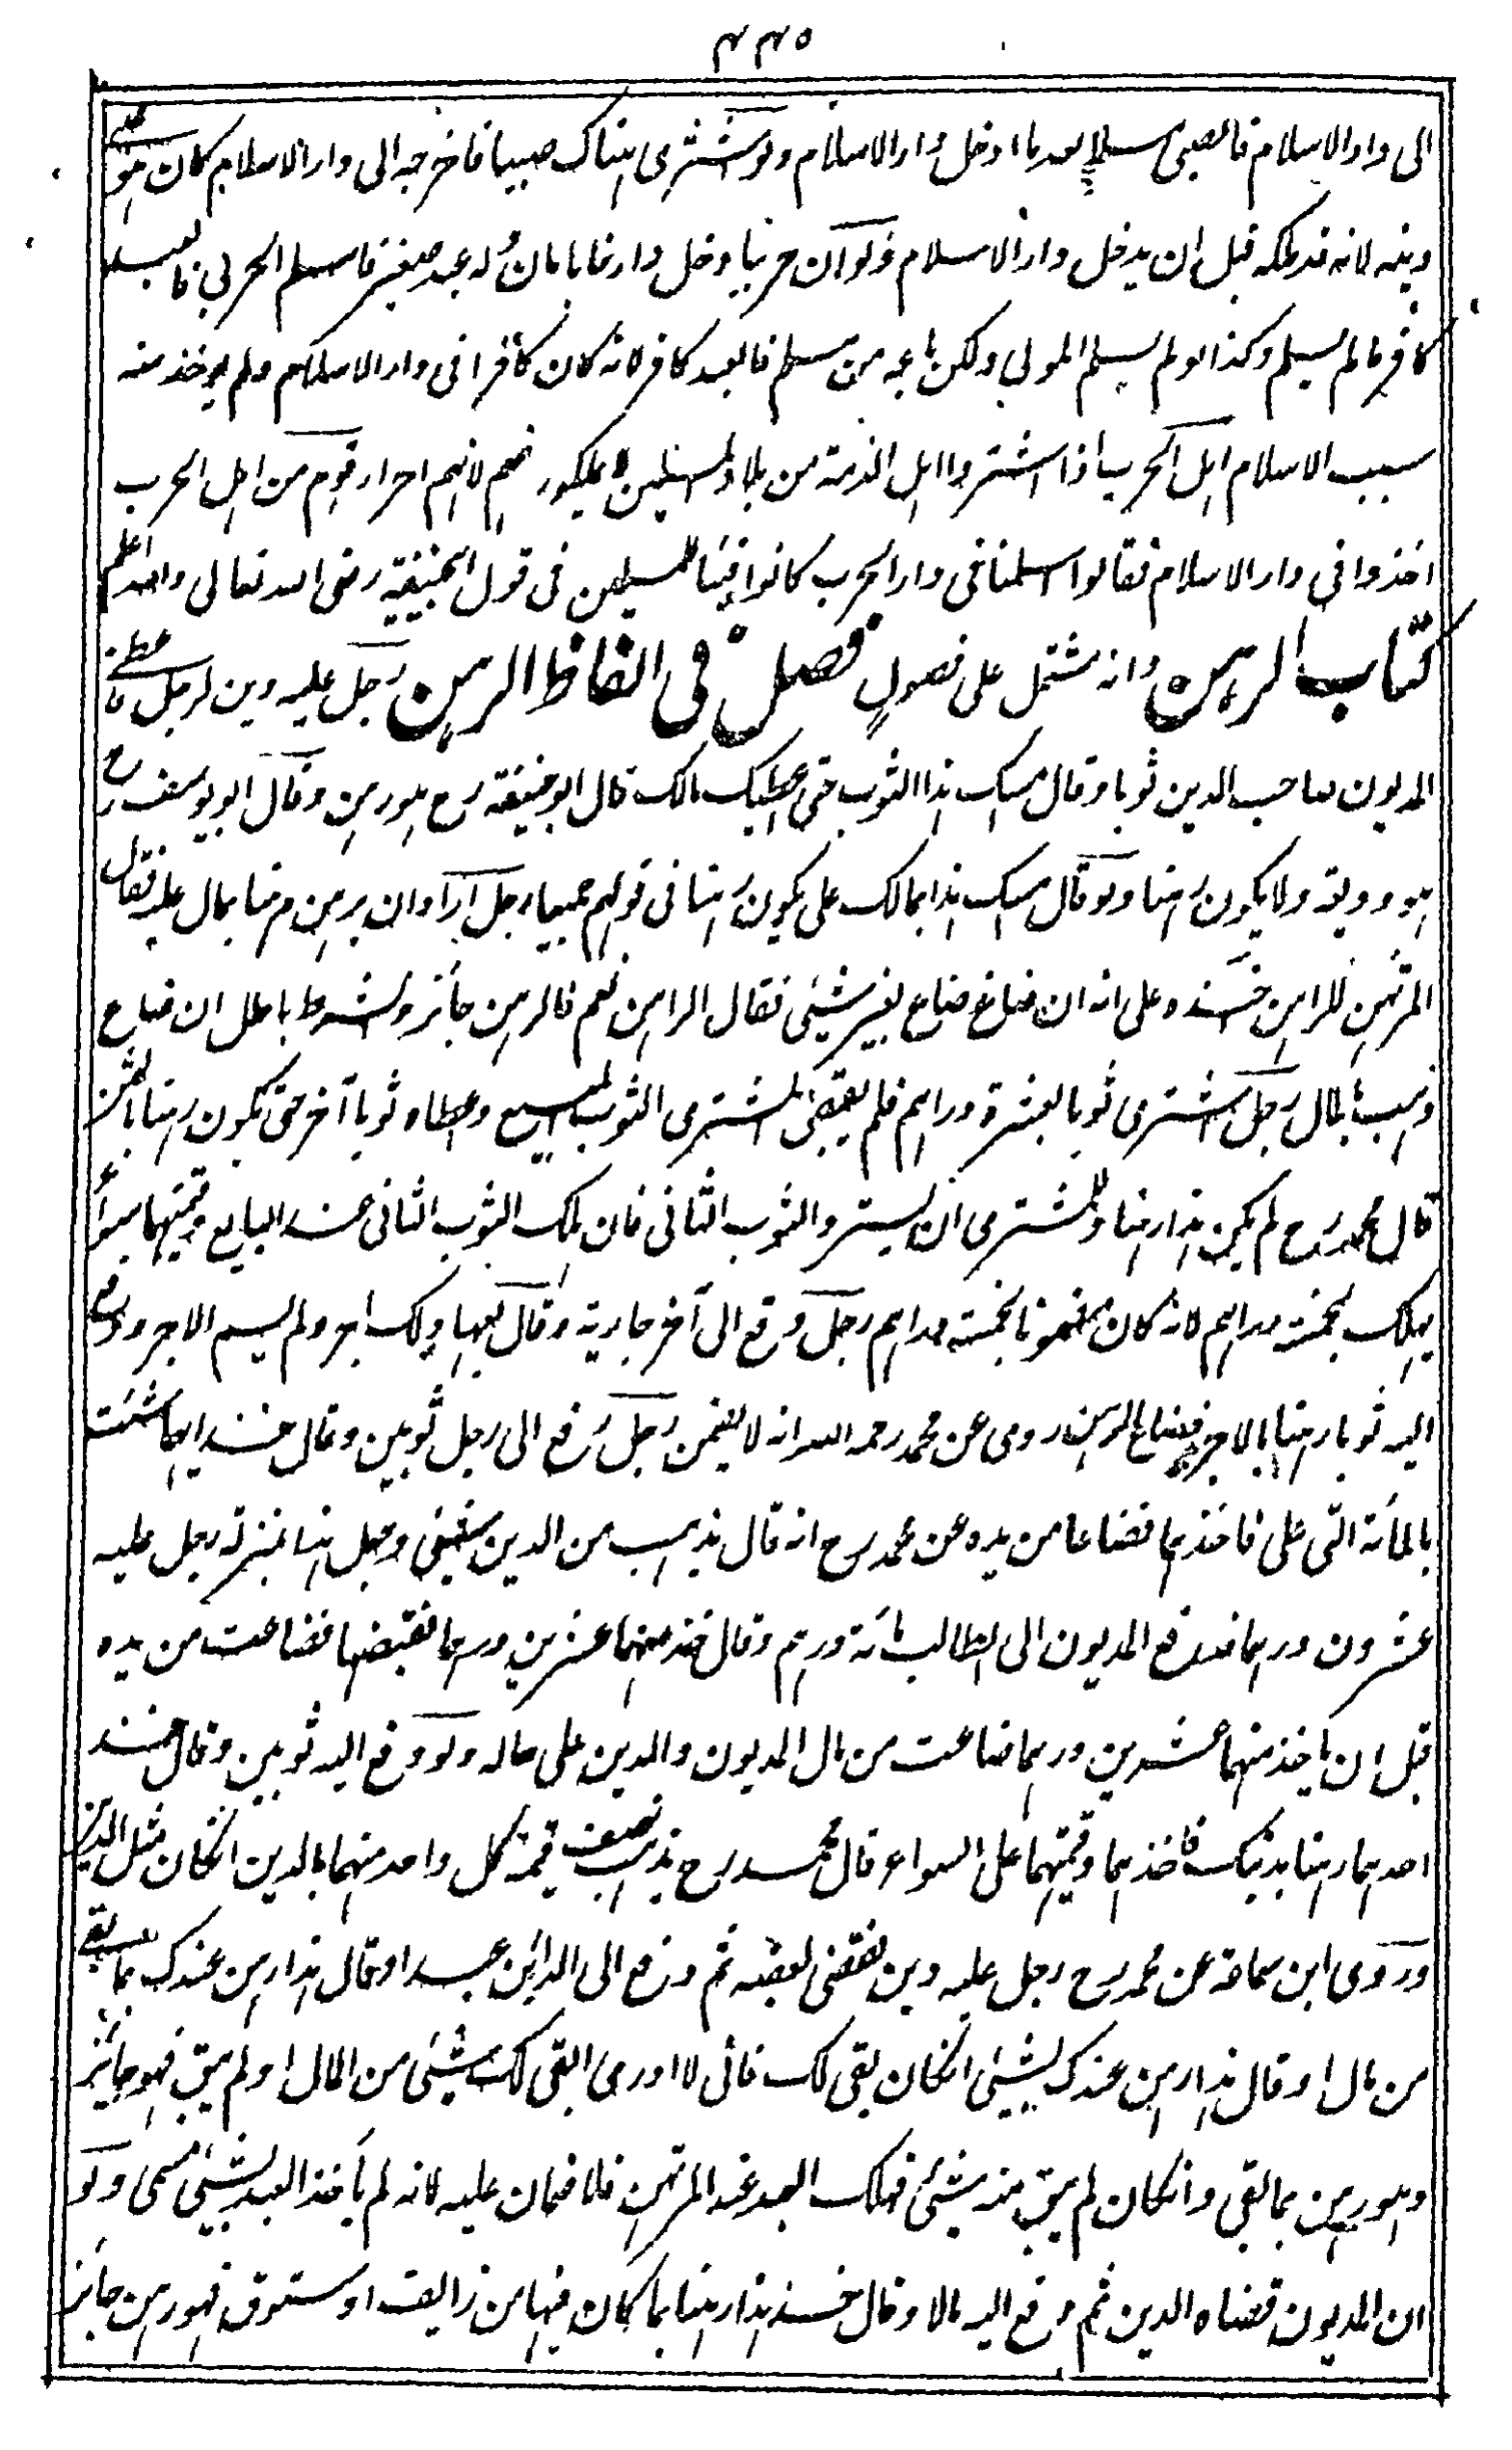 ٤٤٥
الى دار الاسلام فالصبى مسلم بعد ما ادخل دار الاسلام ولو اشترى هناك صبيا فاخرجه الى دار الاسلام كان هو على
دينه لانه قد ملكه قبل ان يدخل دار الاسلام ولو ان حربيا دخل دارنا بامان وله عبد صغير فاسلم الحربى فالعبد
كافر ما لم يسلم وكذا لو لم يسلم المولى ولكن باعه من مسلم فالعبد كافر لانه كان كافرا فى دار الاسلام ولم يوخذ منه
سبب الاسلام اهل الحرب اذا اشتروا اهل الذمة من بلاد المسلمين لا يملكونهم لانهم احرار قوم من اهل الحرب
اخذوا فى دار الاسلام فقالوا اسلمنا فى دار الحرب كانوا فيئا للمسلمين فى قول ابيحنيفة رضى الله تعالى والله اعلم
كتاب الرهن وانه مشتمل على فصول فصل فى الفاظ الرهن رجل عليه دين لرجل فاعطى
المديون صاحب الدين ثوبا وقال امسك هذا الثوب حتى اعطيك مالك قال ابو حنيفة رح هو رهن وقال ابو يوسف رح
هو وديعة ولا يكون رهنا ولو قال امسك هذا بمالك على يكون رهنا فى قولهم جميعا رجل اراد ان يرهن رهنا بمال عليه فقال
المرتهن للراهن آخذه على انه ان ضاع ضاع بغير شيئى فقال الراهن نعم فالرهن جائز والشرط باطل ان ضاع
ذهب بالمال رجل اشترى ثوبا بعشرة دراهم فلم يقبض المشترى الثوب المبيع واعطاه ثوبا آخر حتى يكون رهنا بالثمن
قال محمد رح لم يكن هذا رهنا وللمشترى ان يسترد الثوب الثانى فان هلك الثوب الثانى عند البايع وقيمتهما سواء
يهلك بخمسة دراهم لانه كان مضمونا بخمسة دراهم رجل دفع الى آخر جارية وقال بعها ولك اجر ولم يسم الاجر ودفع
اليه ثوبا رهنا بالاجر فضاع الرهن روى عن محمد رحمه الله انه لا يضمن رجل دفع الى رجل ثوبين وقال خذ ايهما شئت
بالمائة التى على فاخذهما فضاعا من يده عن محمد رح انه قال يذهب من الدين شيئ وجعل هذا بمنزلة رجل عليه
عشرون درهما فدفع المديون الى الطالب مائة درهم وقال خذ منهما عشرين درهما فقبضها فضاعت من يده
قبل ان ياخذ منهما عشرين درهما ضاعت من مال المديون والدين على حاله ولو دفع اليه ثوبين وقال خذ
احدهما رهنا بدينك فاخذهما وقيمتهما على السواء قال محمد رح يذهب نصف قيمة كل واحد منهما بالدين انكان مثل الدين
وروى ابن سماعة عن محمد رح رجل عليه دين فقضى بعضه ثم دفع الى الدائن عبدا وقال هذا رهن عندك بما بقى
من مال او قال هذا رهن عندك بشيئى انكان بقى لك فانى لا ادرى ابقى لك شيئى من المال او لم يبق فهو جائز
وهو رهن بما بقى وانكان لم يبق منه شيئى فهلك العبد عند المرتهن فلا ضمان عليه لانه لم ياخذ العبد بشيئى مسمى ولو
ان المديون قضاه الدين ثم دفع اليه مالا وقال خذ هذا رهنا بما كان فيها من زايف او ستوق فهو رهن جائز